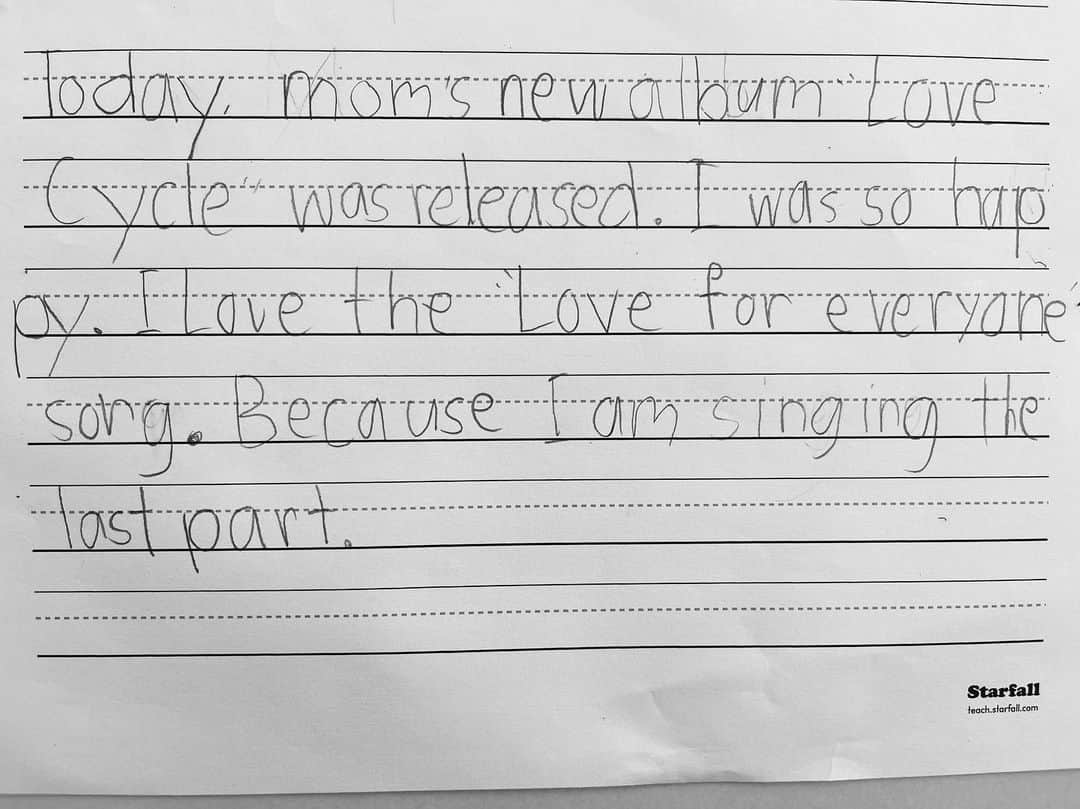 Today, mom's new album "Love
Cycle" was released. I was so hap
py. I Love the "Love for everyone"
song. Because I am singing the
last part.
Starfall
teach.starfall.com